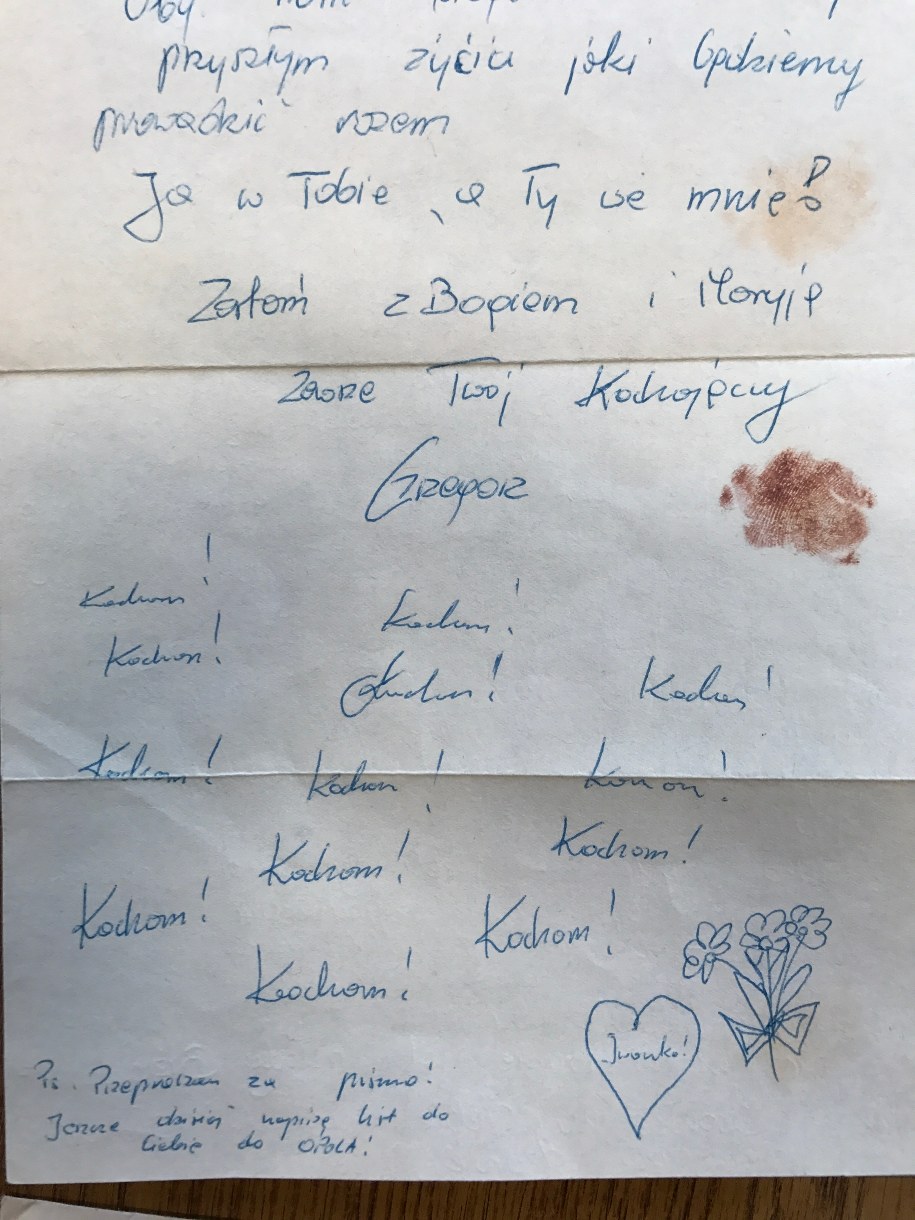 przyszłym życiu jaki będziemy
prowadzić razem
Ja w Tobie, a Ty we mnie!
Zostań z Bogiem i Maryją
Zawsze Twój Kochający
Grzegorz
Kocham!
Kocham! Kocham!
Kocham! Kocham!
Kocham! Kocham! Kocham!
Kocham! Kocham!
Kocham! Kocham!
Kocham!
Iwonko!
Ps. Przepraszam za pismo!
Jeszcze dzisiaj napiszę list do
Ciebie do OPOLA!